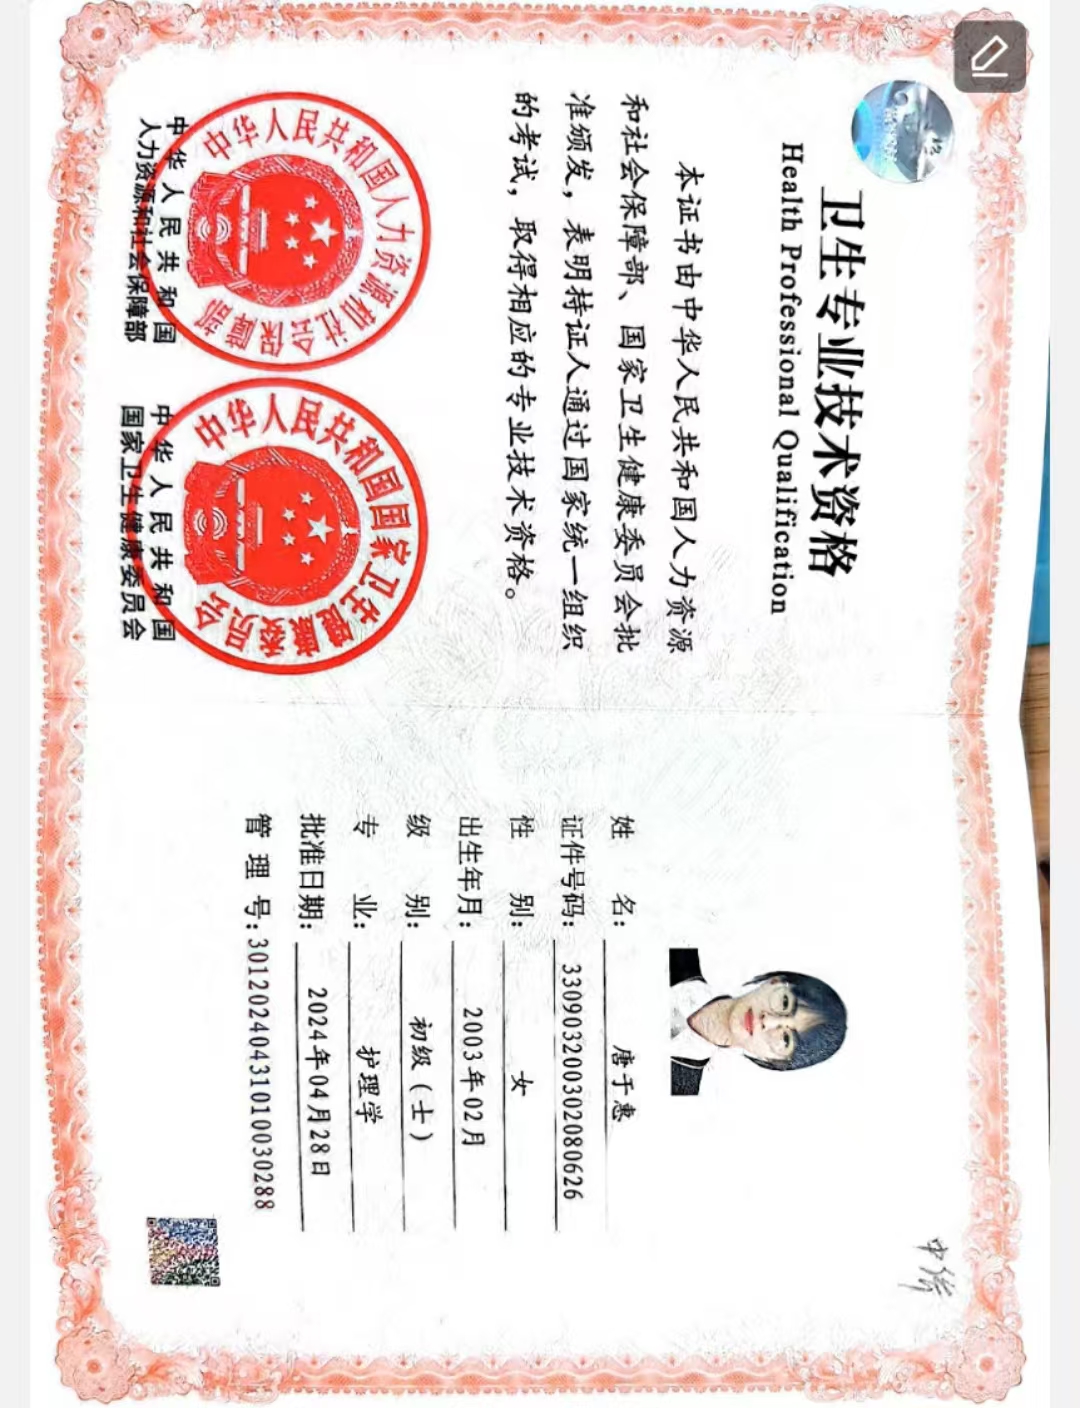 卫生专业技术资格
Health Professional Qualification
本证书由中华人民共和国人力资源
和社会保障部、国家卫生健康委员会批
准颁发，表明持证人通过国家统一组织
的考试，取得相应的专业技术资格。
中华人民共和国人力资源和社会保障部
中华人民共和国
人力资源和社会保障部
中华人民共和国国家卫生健康委员会
中华人民共和国
国家卫生健康委员会
姓名：唐于惠
证件号码：330903200302080626
性别：女
出生年月：2003年02月
级别：初级（士）
专业：护理学
批准日期：2024年04月28日
管理号：30120240431010030288